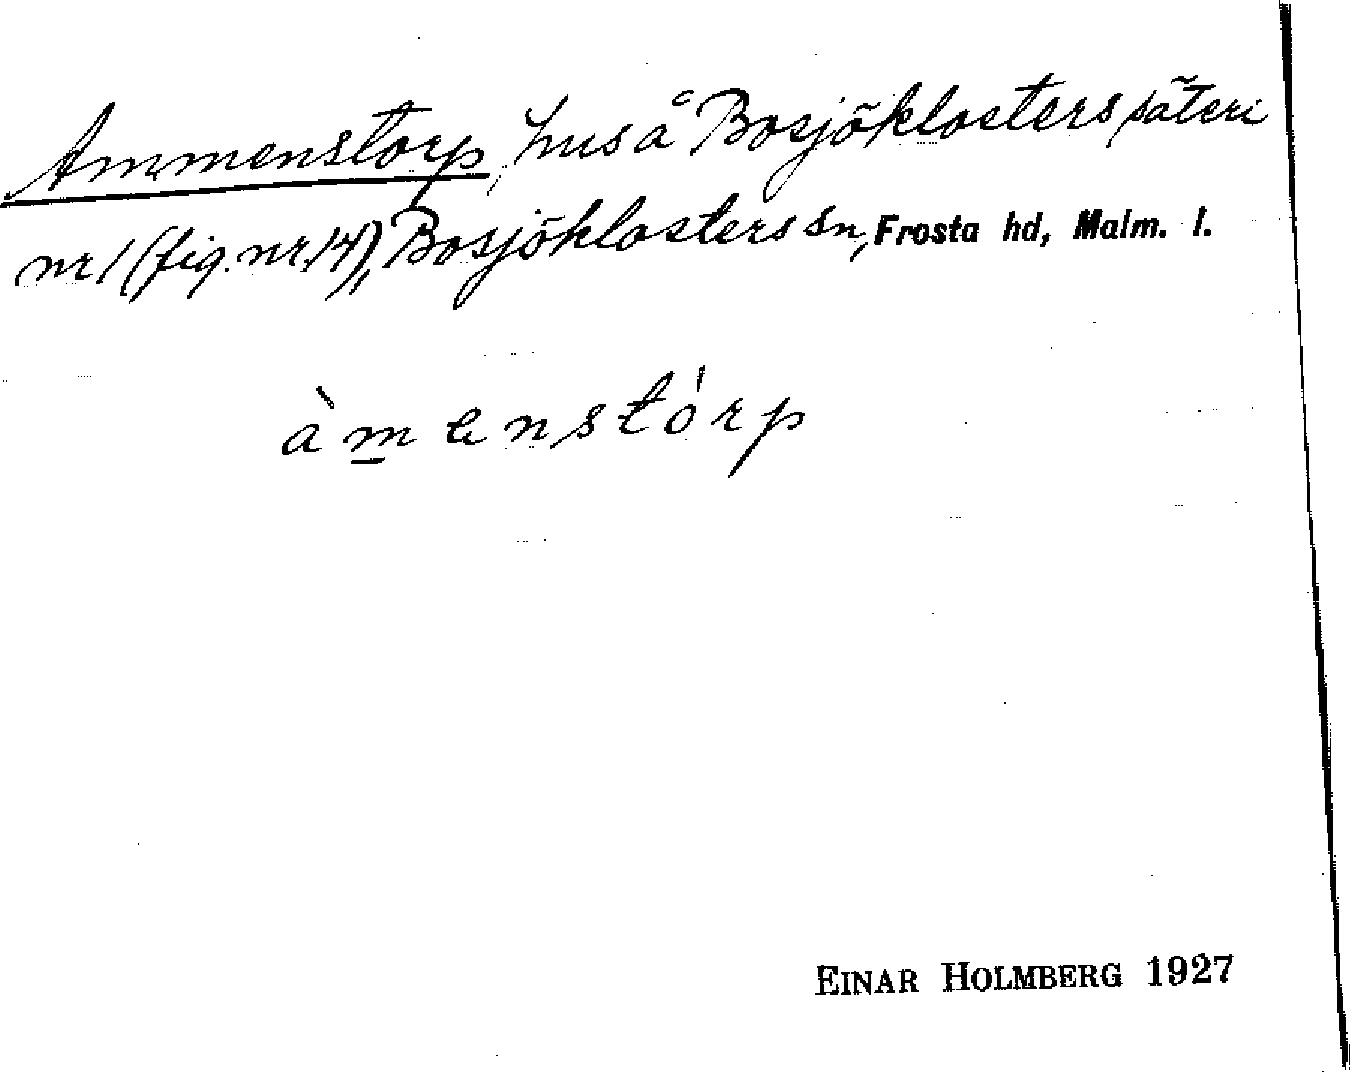 Ammenstorp, hus å Bosjöklosters säteri
nr 1 (fig. nr 14), Bosjöklosters sn, Frosta hd, Malm. l.
àmenstórp
EINAR HOLMBERG 1927